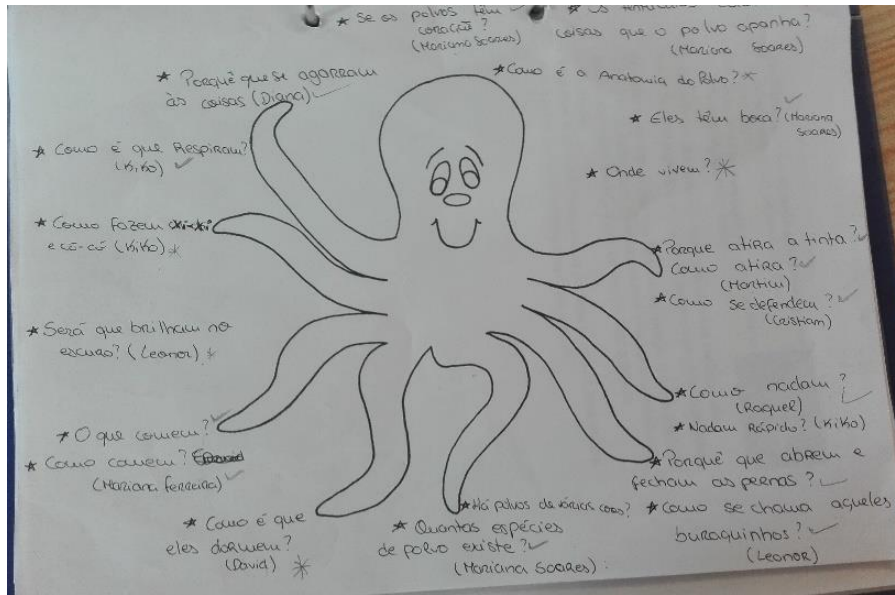 ★ Se os polvos têm
coração?
(Mariana Soares)
coisas que o polvo apanha?
(Mariana Soares)
★ Porquê que se agarram
às coisas (Diana)
★ Como é a Anatomia do Polvo?
★ Eles têm boca? (Mariana
Soares)
★ Como é que Respiram?
(Kiko)
★ Onde vivem?
★ Como fazem xi-xi
e có-có (Kiko)
★ Porque atira a tinta?
Como atira?
(Martim)
★ Como se defendem?
(Cristiam)
★ Será que brilham no
escuro? (Leonor)
★ Como nadam?
(Raquel)
★ Nadam Rápido? (Kiko)
★ O que comem?
★ Como comem?
(Mariana Ferreira)
★ Porquê que abrem e
fecham as pernas?
★ Há polvos de várias cores?
★ Como se chama aqueles
buraquinhos?
(Leonor)
★ Como é que
eles dormem?
(David)
★ Quantas espécies
de polvo existe?
(Mariana Soares)